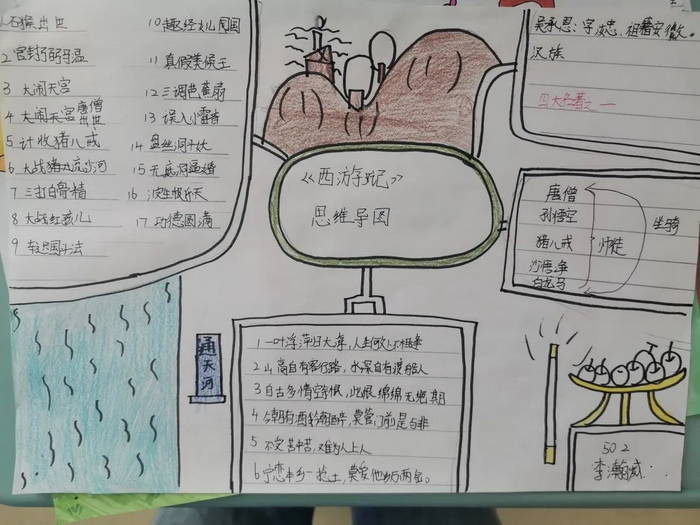 1石猴出世
2官封弼马温
3 大闹天宫
4 大闹天宫唐僧出世
5 计收猪八戒
6 大战流沙河
7 三打白骨精
8 大战红孩儿
9 车迟国斗法
10 趣经女儿国
11 真假美猴王
12 三调芭蕉扇
13 误入小雷音
14 盘丝洞斗妖
15 无底洞
16
17 功德圆满
吴承恩：字汝忠，祖籍安徽。
汉族
四大名著之一
《西游记》
思维导图
唐僧
孙悟空
猪八戒
沙悟净
白龙马
师徒
坐骑
通天河
1 一叶浮萍归大海，人生何处不相逢
2 山高自有客行路，水深自有渡船人
3 自古多情空余恨，此恨绵绵无绝期
4 今朝有酒今朝醉，莫管门前是与非
5 不受苦中苦，难为人上人
6 宁恋本乡一捻土，莫爱他乡万两金。
502
李瀚威